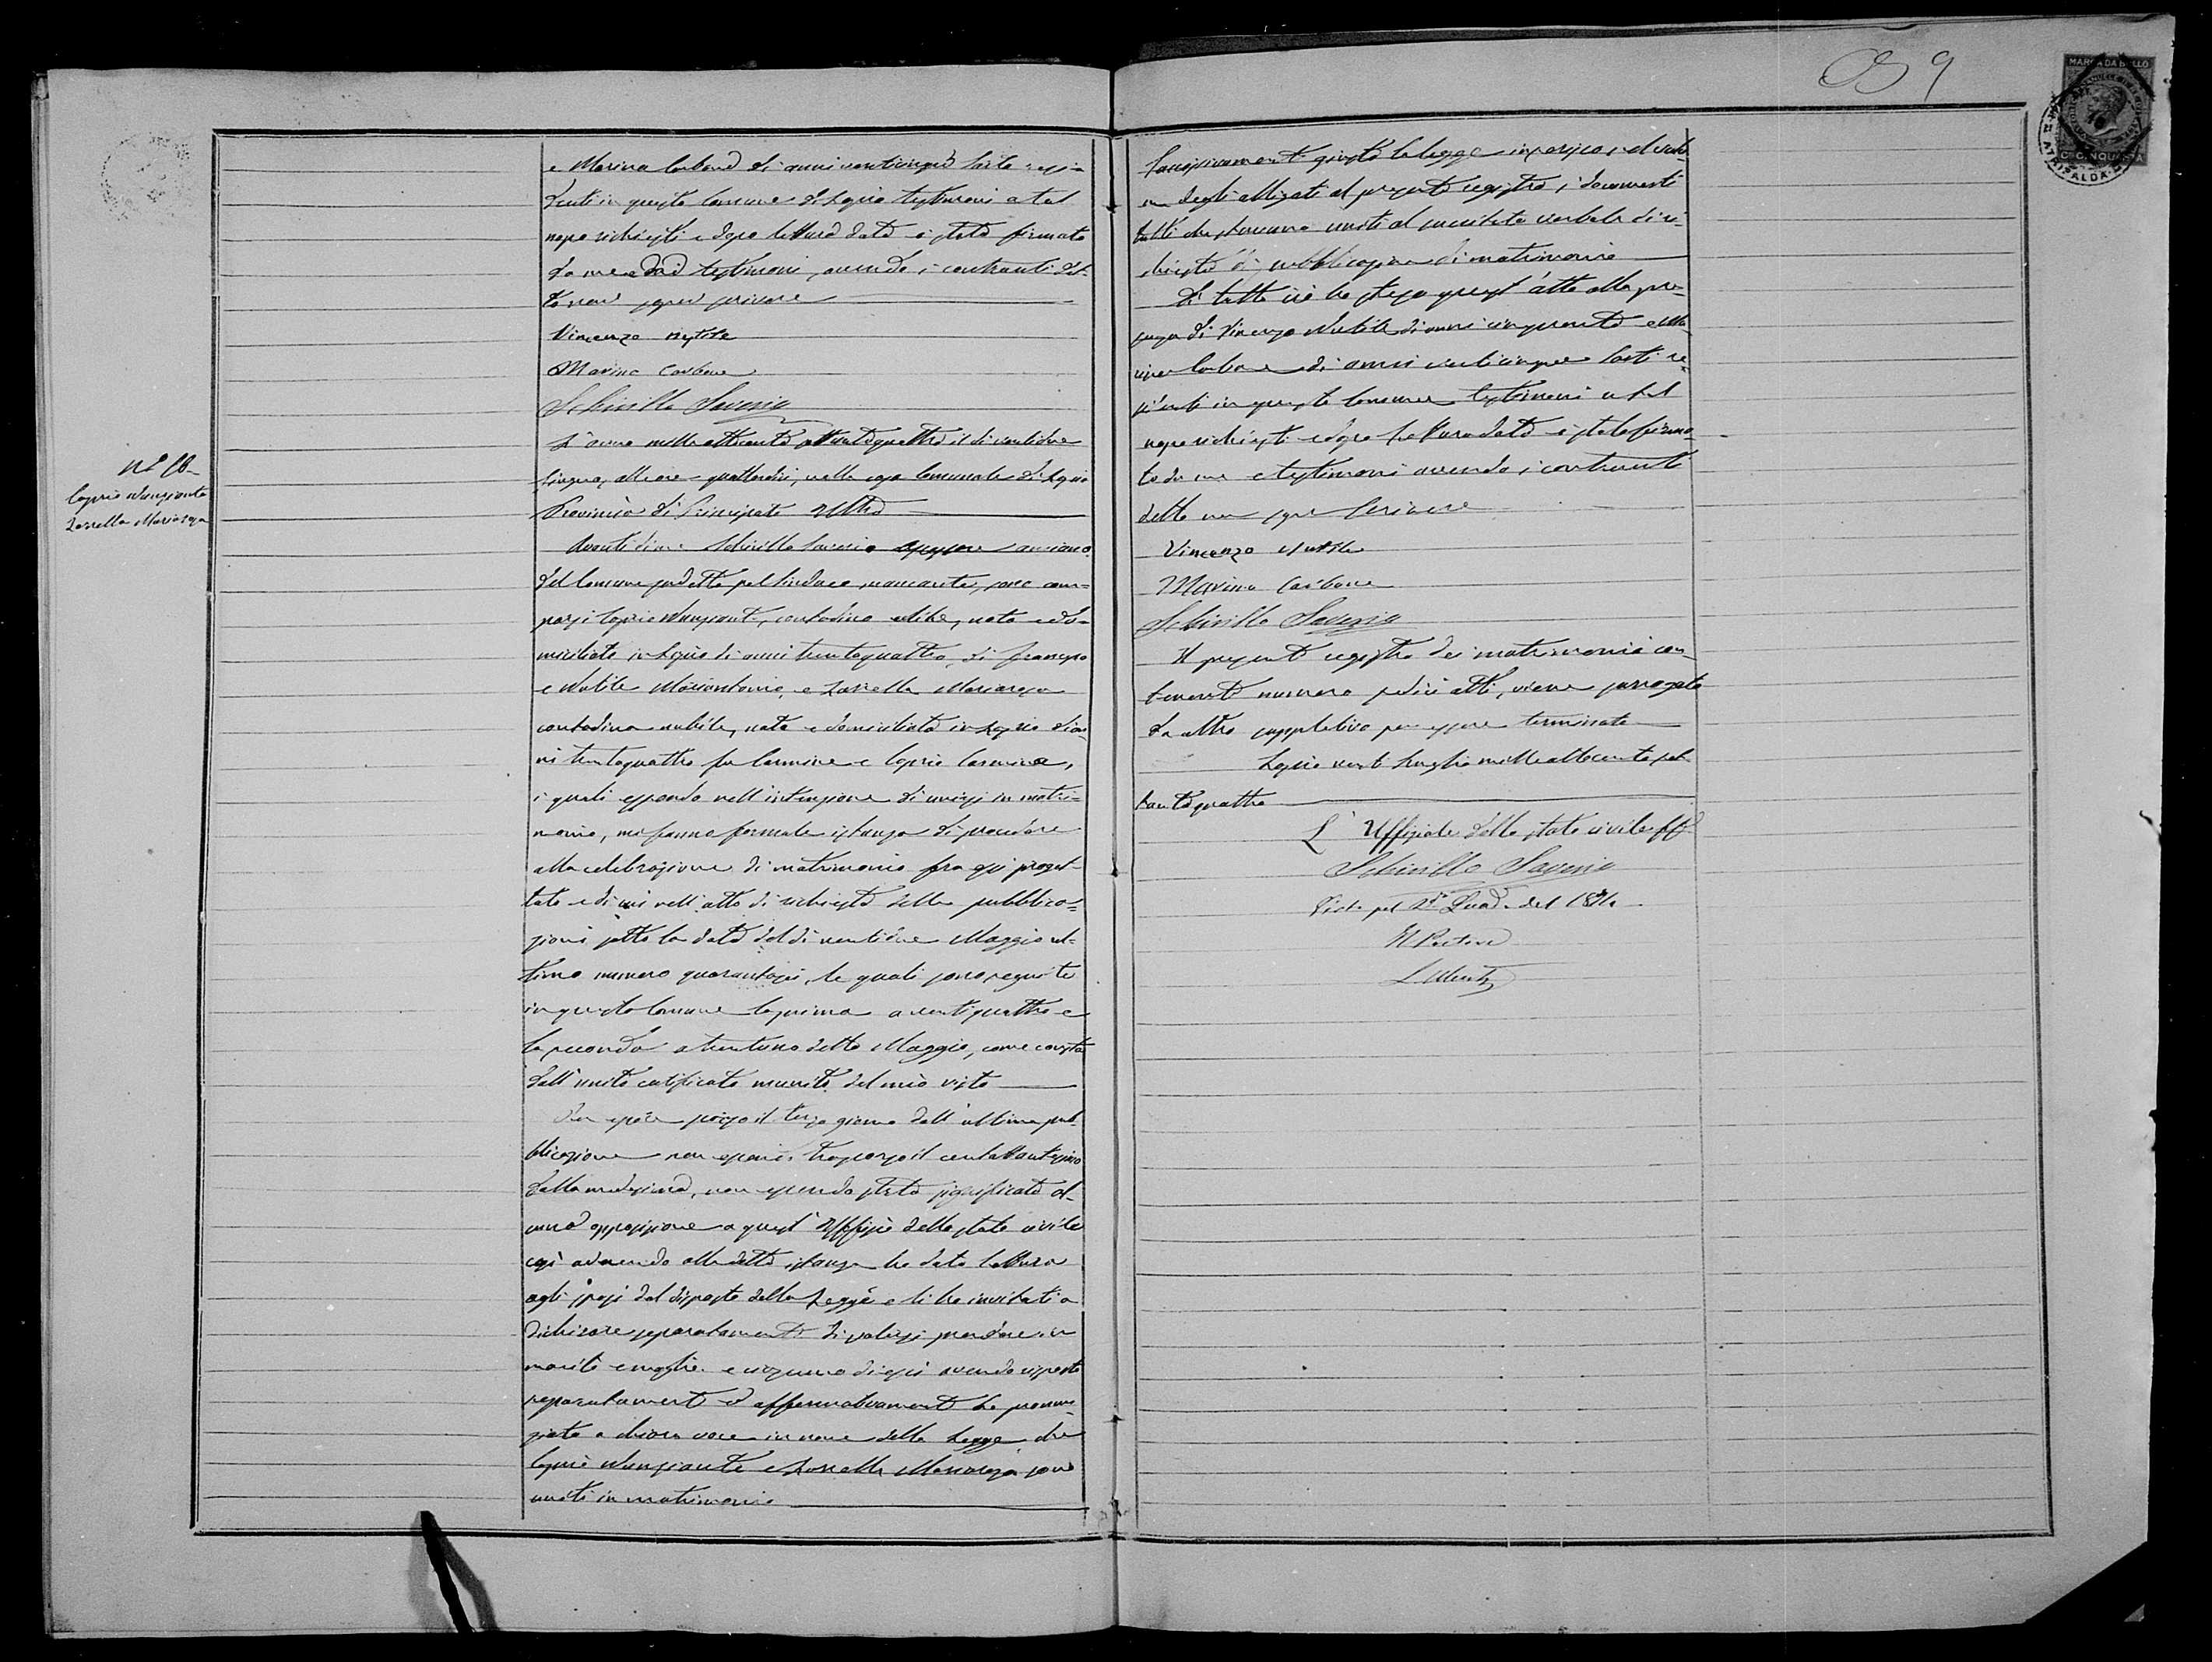 9
MARCA DA BOLLO
e Marino Carbone di anni venticinque sarto resi=
denti in questo Comune di Lapio testimoni a tal
uopo richiesti e dopo lettura data è stato firmato
da me e dai testimoni, avendo i contraenti det-
to non saper scrivere
Vincenzo Nutile
Marino Carbone
Schirillo Saverio
N.º 16
Caprio Nunziante
Zarrella Mariarosa
L'anno mille ottocento settantaquattro il dì ventidue
Giugno, alle ore quattordici, nella casa Comunale di Lapio
Provincia di Principato Ultra
Avanti di me Schirillo Saverio assessore anziano
del Comune sudetto pel Sindaco mancante, sono com=
parsi Caprio Nunziante, contadino celibe, nato e do=
miciliato in Lapio di anni trentaquattro, di
e Nutile Mariantonia, e Zarrella Mariarosa
contadina nubile, nata e domiciliata in Lapio d'an-
ni trentaquattro fu Carmine e Caprio Carmina,
i quali essendo nell'intenzione di unirsi in matri=
monio, mi fanno formale istanza di procedere
alla celebrazione di matrimonio fra essi proget-
tato e di cui nell'atto di richiesta delle pubblica=
zioni sotto la data del dì ventidue Maggio ul=
timo numero quarantasei, le quali sono seguite
in questo Comune la prima a ventiquattro e
la seconda a trentuno detto Maggio, come consta
dall'unito certificato munito del mio visto
Per essere scorso il terzo giorno dall'ultima pub-
blicazione non essersi trascorso il centottantesimo
dalla medesima, non essendo stata significata al-
cuna opposizione a quest'Uffizio dello stato civile
così aderendo alla detta istanza ho dato lettura
agli sposi del disposto della Legge e li ho invitati a
dichiarare separatamente di volersi prendere in
marito e moglie e ciascuno di essi avendo risposto
separatamente ed affermativamente ho pronun-
ziato a chiara voce in nome della Legge, che
Caprio Nunziante e Zarrella Mariarosa sono
uniti in matrimonio
giusta la legge ed ho
degli allegati al presente registro i documenti
tutti che stavano uniti al succitato verbale di ri-
chiesta di pubblicazione di matrimonio
Di tutto ciò ho steso quest'atto alla pre-
senza di Vincenzo Nutile di anni cinquanta e Ma-
rino Carbone di anni venticinque sarti re-
sidenti in questo Comune testimoni a tal
uopo richiesti e dopo lettura data è stato firma-
to da me e testimoni avendo i contraenti
detto non saper scrivere
Vincenzo Nutile
Marino Carbone
Schirillo Saverio
Il presente registro dei matrimonii con-
tenente numero sedici atti, viene surrogato
da altro suppletivo per essere terminato
Lapio venti Luglio mille ottocento set-
tantaquattro
L'Uffiziale dello stato civile ff
Schirillo Saverio
Visto pel 2º Quad. del 1874
Il Pretore